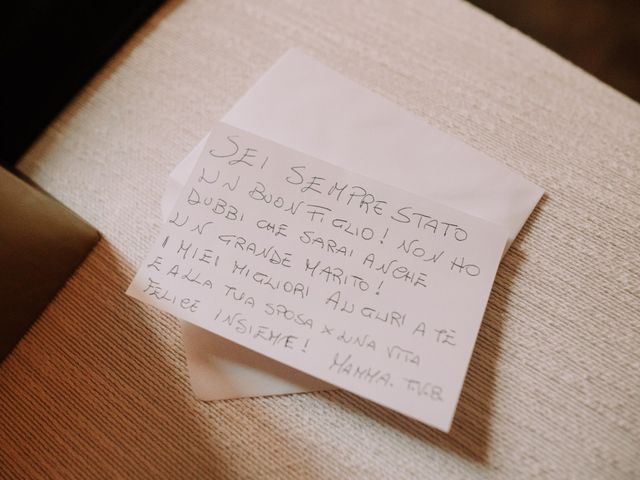 SEI SEMPRE STATO
UN BUON FIGLIO! NON HO
DUBBI CHE SARAI ANCHE
UN GRANDE MARITO!
I MIEI MIGLIORI AUGURI A TE
E ALLA TUA SPOSA X UNA VITA
FELICE INSIEME! MAMMA. T.V.B.